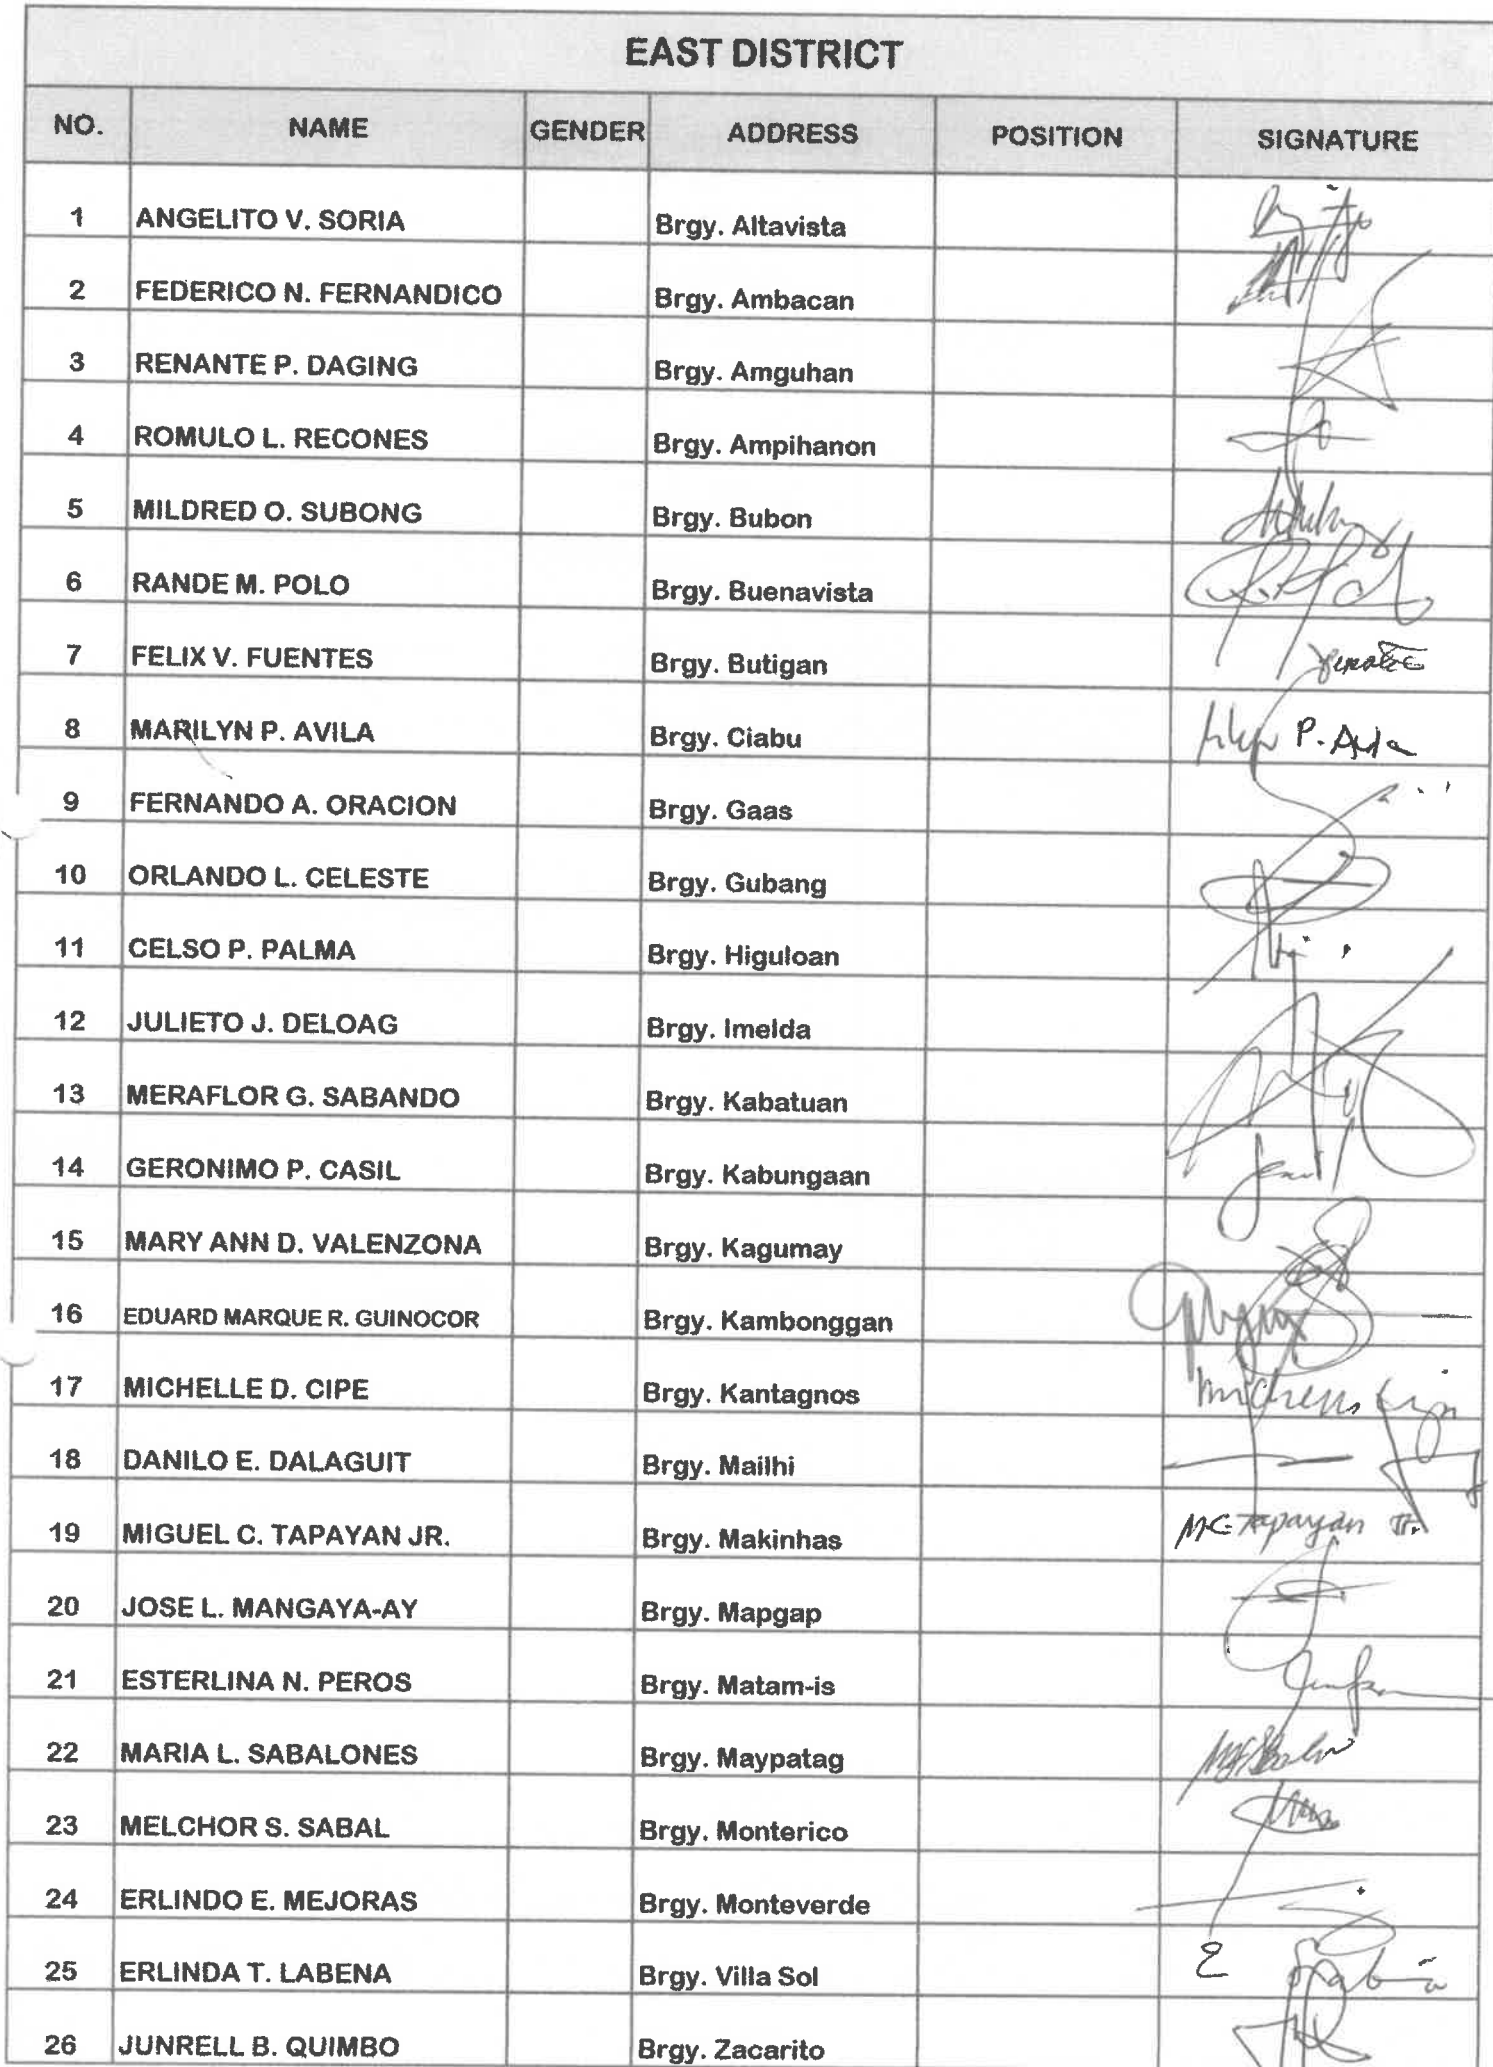 EAST DISTRICT
NO. NAME GENDER ADDRESS POSITION SIGNATURE
1 ANGELITO V. SORIA Brgy. Altavista
2 FEDERICO N. FERNANDICO Brgy. Ambacan
3 RENANTE P. DAGING Brgy. Amguhan
4 ROMULO L. RECONES Brgy. Ampihanon
5 MILDRED O. SUBONG Brgy. Bubon
6 RANDE M. POLO Brgy. Buenavista
7 FELIX V. FUENTES Brgy. Butigan
8 MARILYN P. AVILA Brgy. Ciabu P. Avila
9 FERNANDO A. ORACION Brgy. Gaas
10 ORLANDO L. CELESTE Brgy. Gubang
11 CELSO P. PALMA Brgy. Higuloan
12 JULIETO J. DELOAG Brgy. Imelda
13 MERAFLOR G. SABANDO Brgy. Kabatuan
14 GERONIMO P. CASIL Brgy. Kabungaan
15 MARY ANN D. VALENZONA Brgy. Kagumay
16 EDUARD MARQUE R. GUINOCOR Brgy. Kambonggan
17 MICHELLE D. CIPE Brgy. Kantagnos
18 DANILO E. DALAGUIT Brgy. Mailhi
19 MIGUEL C. TAPAYAN JR. Brgy. Makinhas MC Tapayan Jr.
20 JOSE L. MANGAYA-AY Brgy. Mapgap
21 ESTERLINA N. PEROS Brgy. Matam-is
22 MARIA L. SABALONES Brgy. Maypatag
23 MELCHOR S. SABAL Brgy. Monterico
24 ERLINDO E. MEJORAS Brgy. Monteverde
25 ERLINDA T. LABENA Brgy. Villa Sol
26 JUNRELL B. QUIMBO Brgy. Zacarito